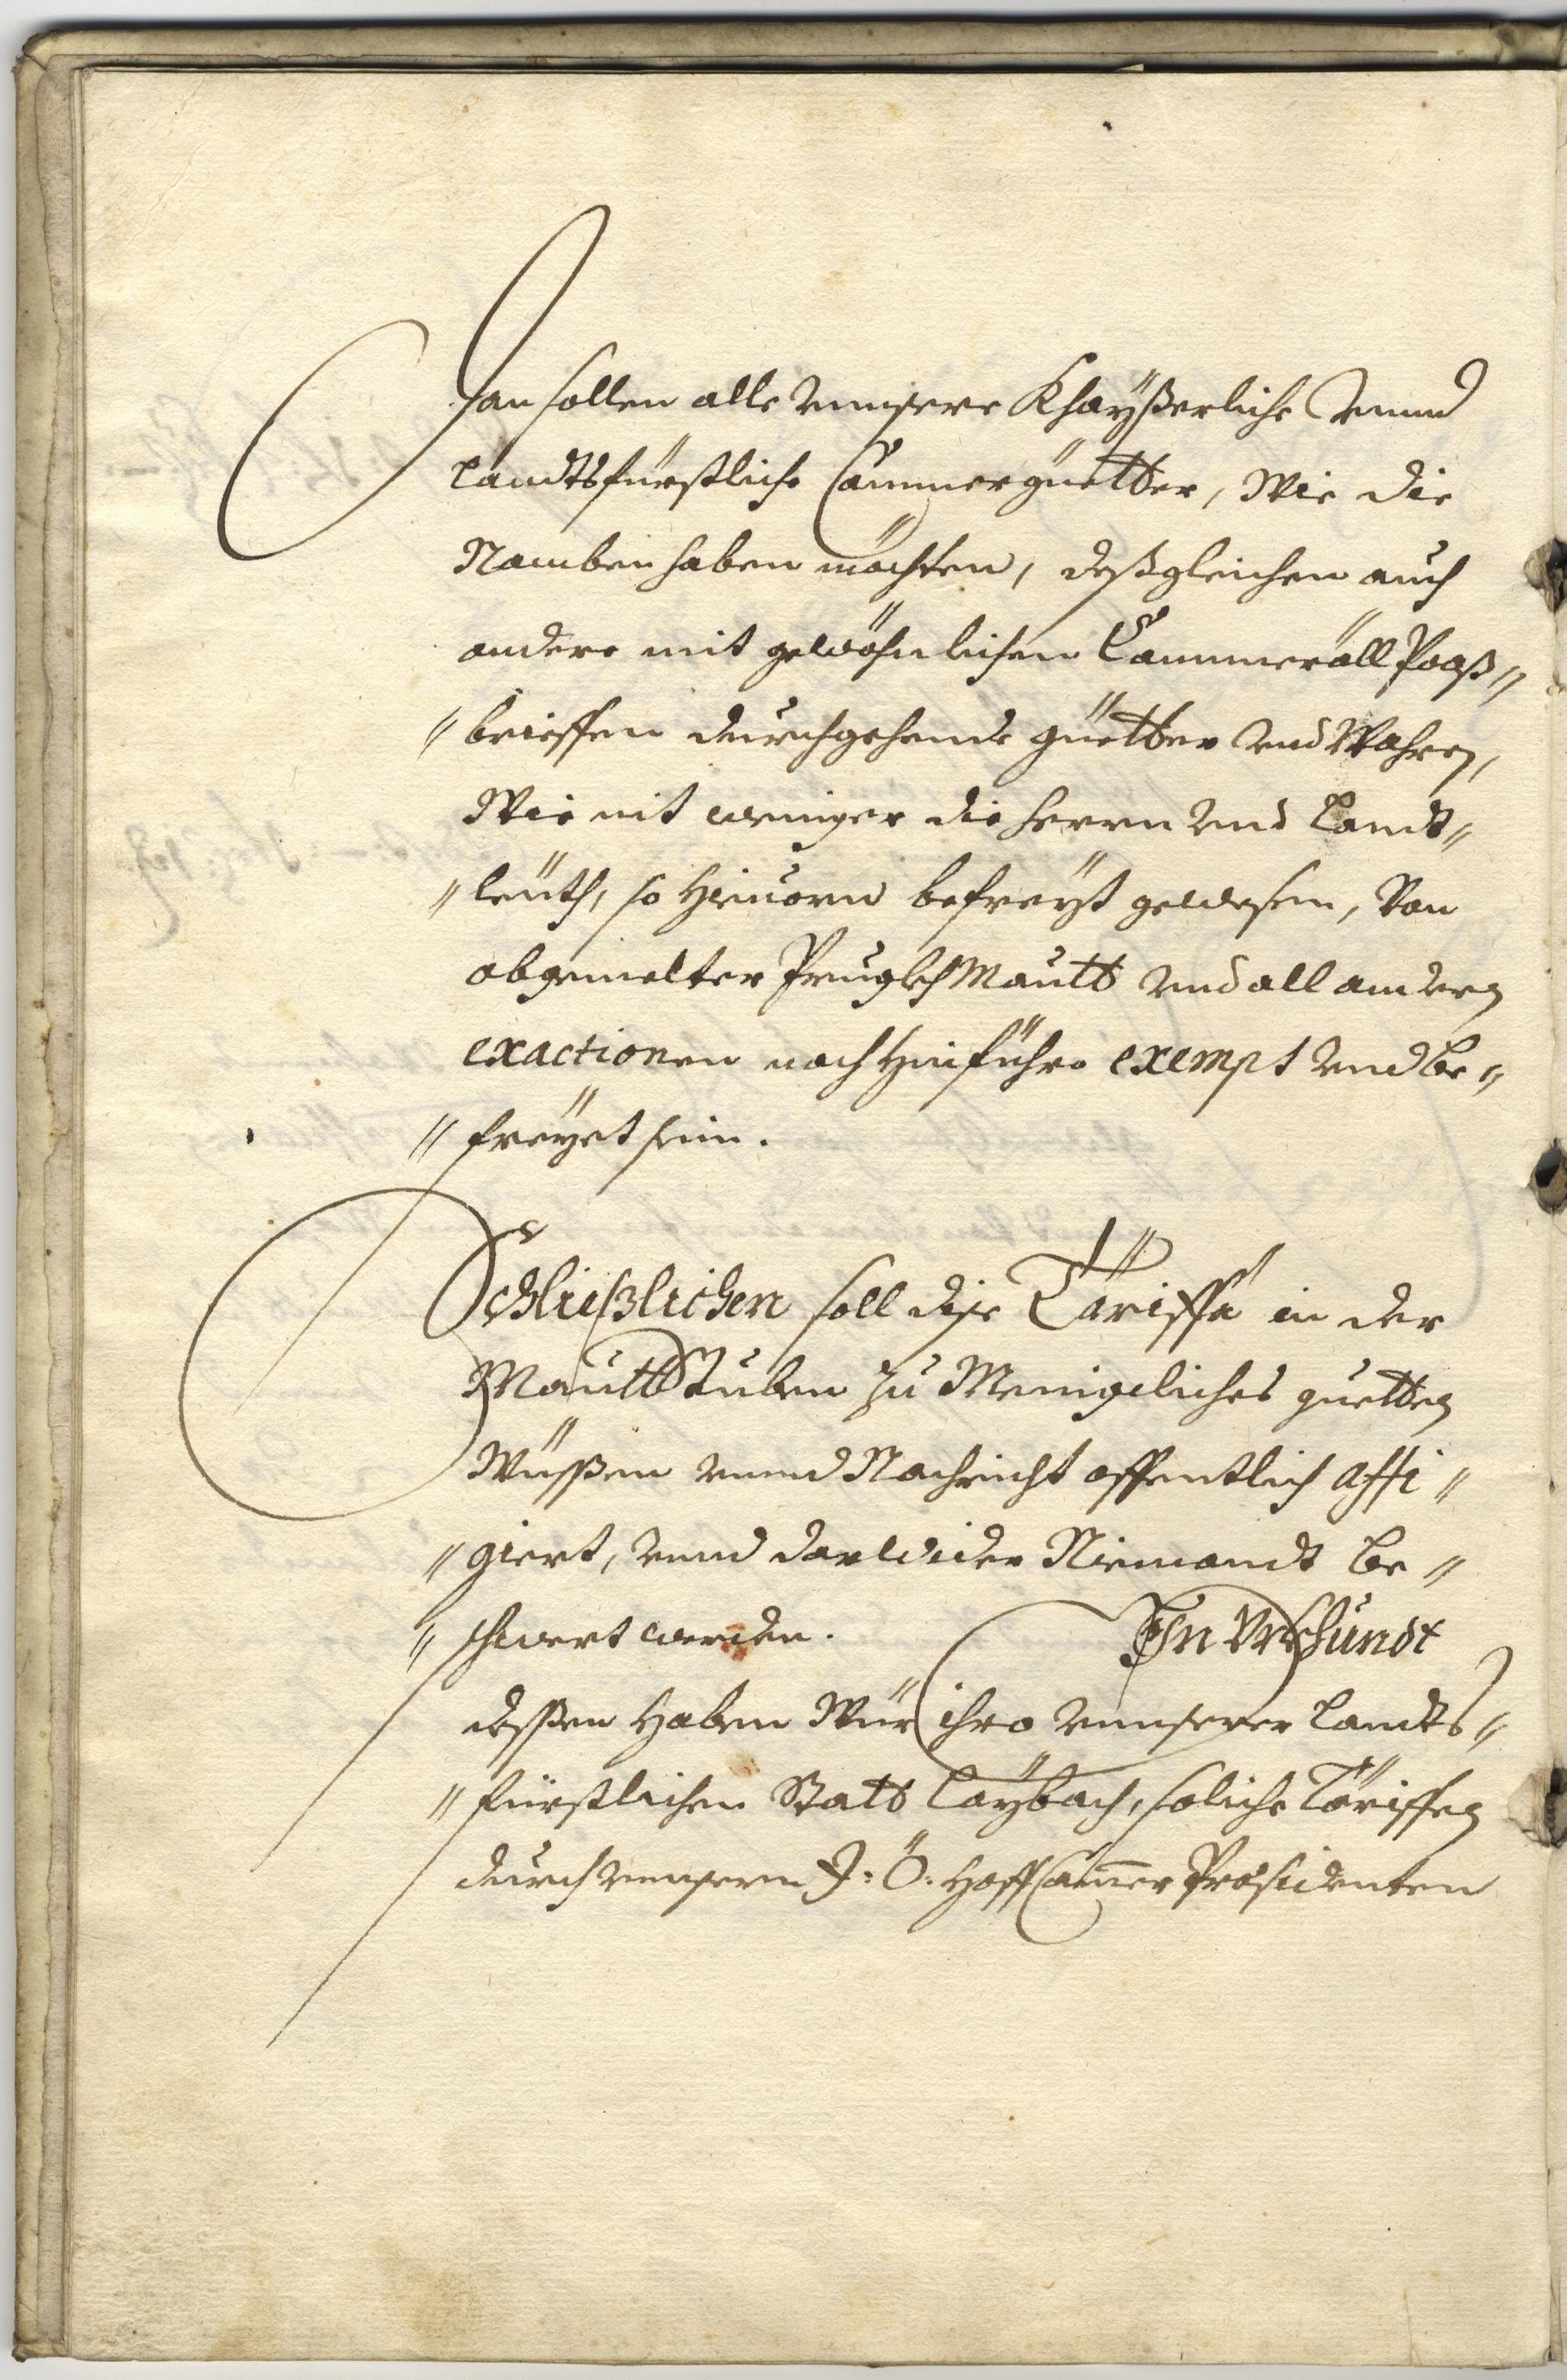 sollen alle unnsere Khaÿßerliche vnnd
Landtsfürstliche Cammergüetter, Wie die
Namben haben möchten, deßgleichen auch
andere mit gewöhnlichen Cammeräll Paaß„
„brieffen durchgehende güetter vnd Wahren,
Wie nit weniger die herrn vnd Landt„
„leüth, so hieuorn befreÿt gewesen, Von
obgemelter Prugkh Mautt vnd all andern
exactionen noch hinführo exempt vnd be„
„freÿet sein.
Schließlichen soll dise Täriffa in der
Mautt Stuben zu Menigcliches guetten
Wüssen vnnd Nachricht offentlich affi„
„giert, vnnd darwider Niemandt be„
„schwert werden. In Vrkhundt
dessen haben Wür ihro vnnserer Landts„
„fürstlichen Statt Laÿbach, soliche Täriffen
durch vnnsern I: Ö: Hoff Camer Præsidenten